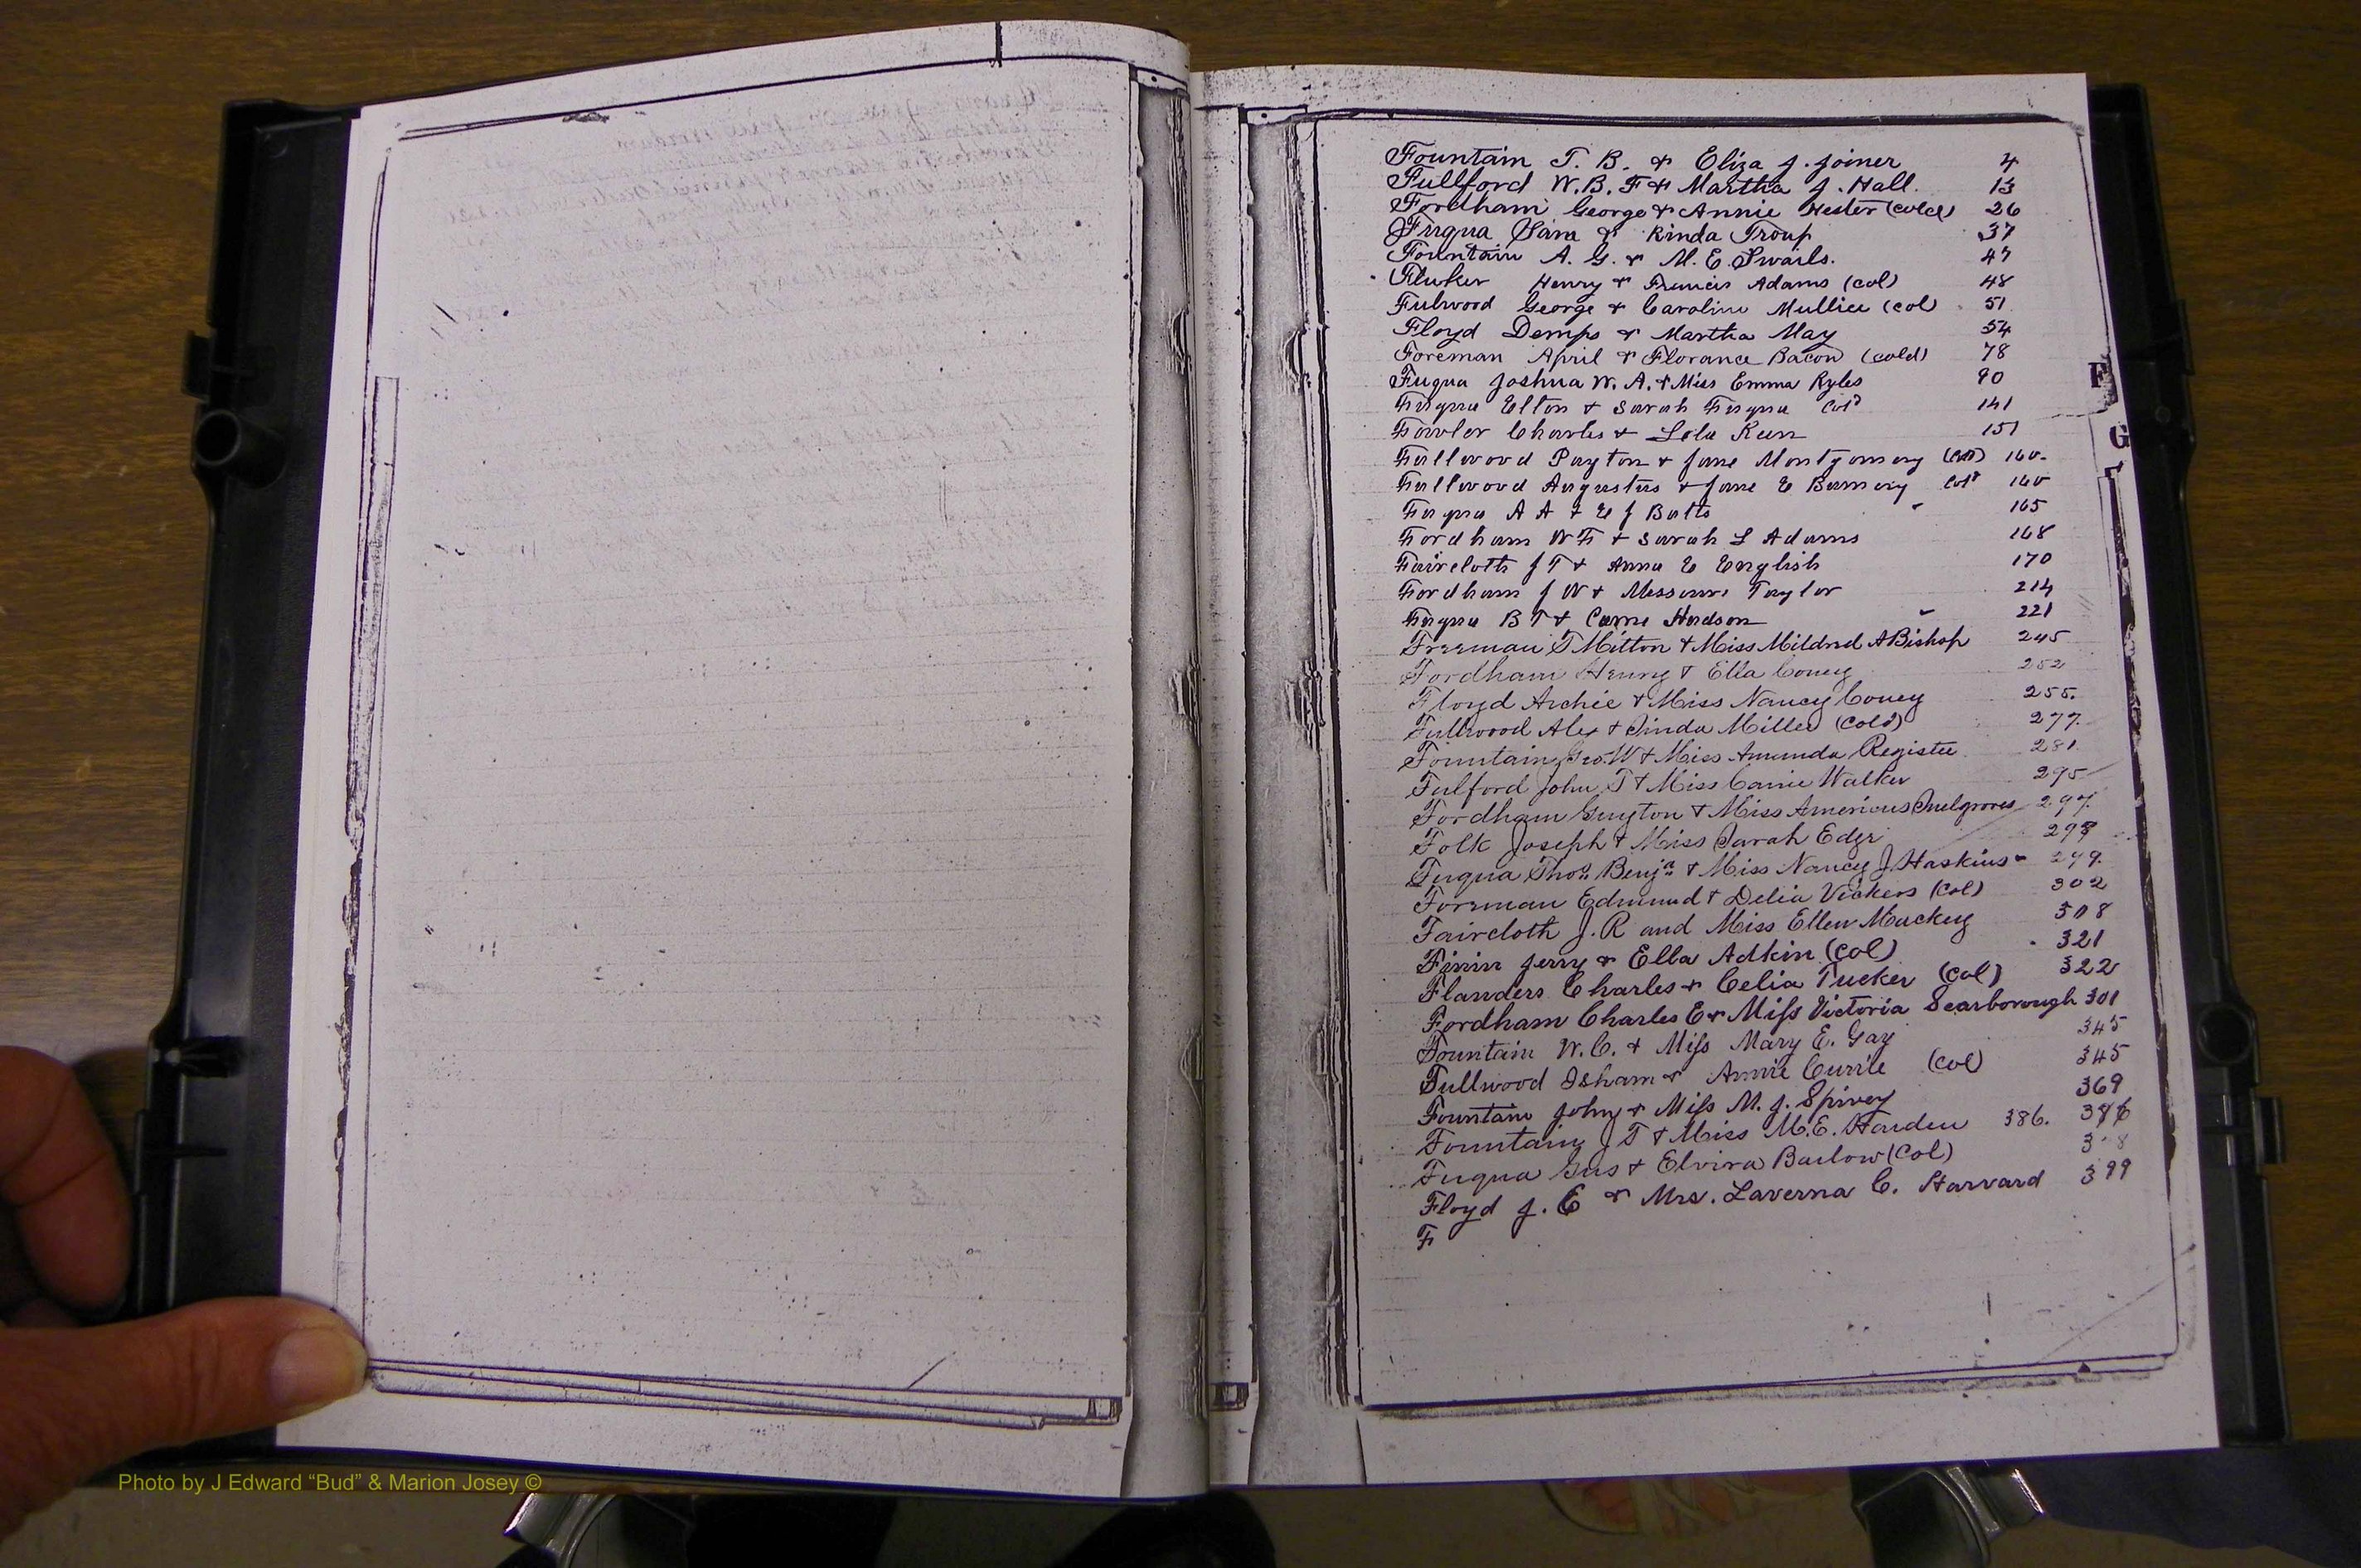 Fountain T. B. & Eliza J. Joiner 4
Fullford W. B. F & Martha J. Hall. 13
Fordham George & Annie Hester (cold) 26
Fuqua Sam & Rinda Troup 37
Fountain A. G. & M. E. Swails. 47
Fluker Henry & Francis Adams (col) 48
Fulwood George & Caroline Mullice (col) 51
Floyd Demps & Martha May 54
Foreman April & Florance Bacon (cold) 78
Fuqua Joshua W. A. & Miss Emma Ryles 90
Fuqua Elton & Sarah Fuqua Cold 141
Fowler Charles & Lola 151
Fullwood Payton & Jane Montgomery (Col) 160.
Fullwood Augustus & Jane E Cold 160
Fuqua A A & E J Butts 165
Fordham W F & Sarah L Adams 168
Faircloth J T & Anna E English 170
Fordham J W & Missouri Taylor 214
Fuqua B T & Carrie Hudson 221
Freeman T Milton & Miss Mildred A Bishop 245
Fordham Henry & Ella Coney 252
Floyd Archie & Miss Nancy Coney 255.
Fullwood Alex & Miller (Cold) 277.
Fountain, Geo. W & Miss Amanda Register 281.
Fulford John T & Miss Carrie Walker 295
Fordham Guyton & Miss Americus 297.
Folk Joseph & Miss Sarah Edge 298
Fuqua Thos. Benja. & Miss Nancy J. Haskins 299.
Foreman Edmund & Delia Vickers (Col) 302
Faircloth J. R and Miss Ellen Mackey 308
Finin Jerry & Ella Adkin (Col) 321
Flanders Charles & Celia Tucker (Col) 322
Fordham Charles E & Miss Victoria Scarborough 301
Fountain W. C. & Miss Mary E. Gay 345
Fullwood Isham & Annie Currie (Col) 345
Fountain John & Miss M. J. Spivey 369
Fountain J T & Miss M. E. Harden 386. 386
Fuqua Gus & Elvira Barlow (Col)
Floyd J. E & Mrs. Laverna C. Harvard 399
F
F
G
Photo by J Edward “Bud” & Marion Josey ©